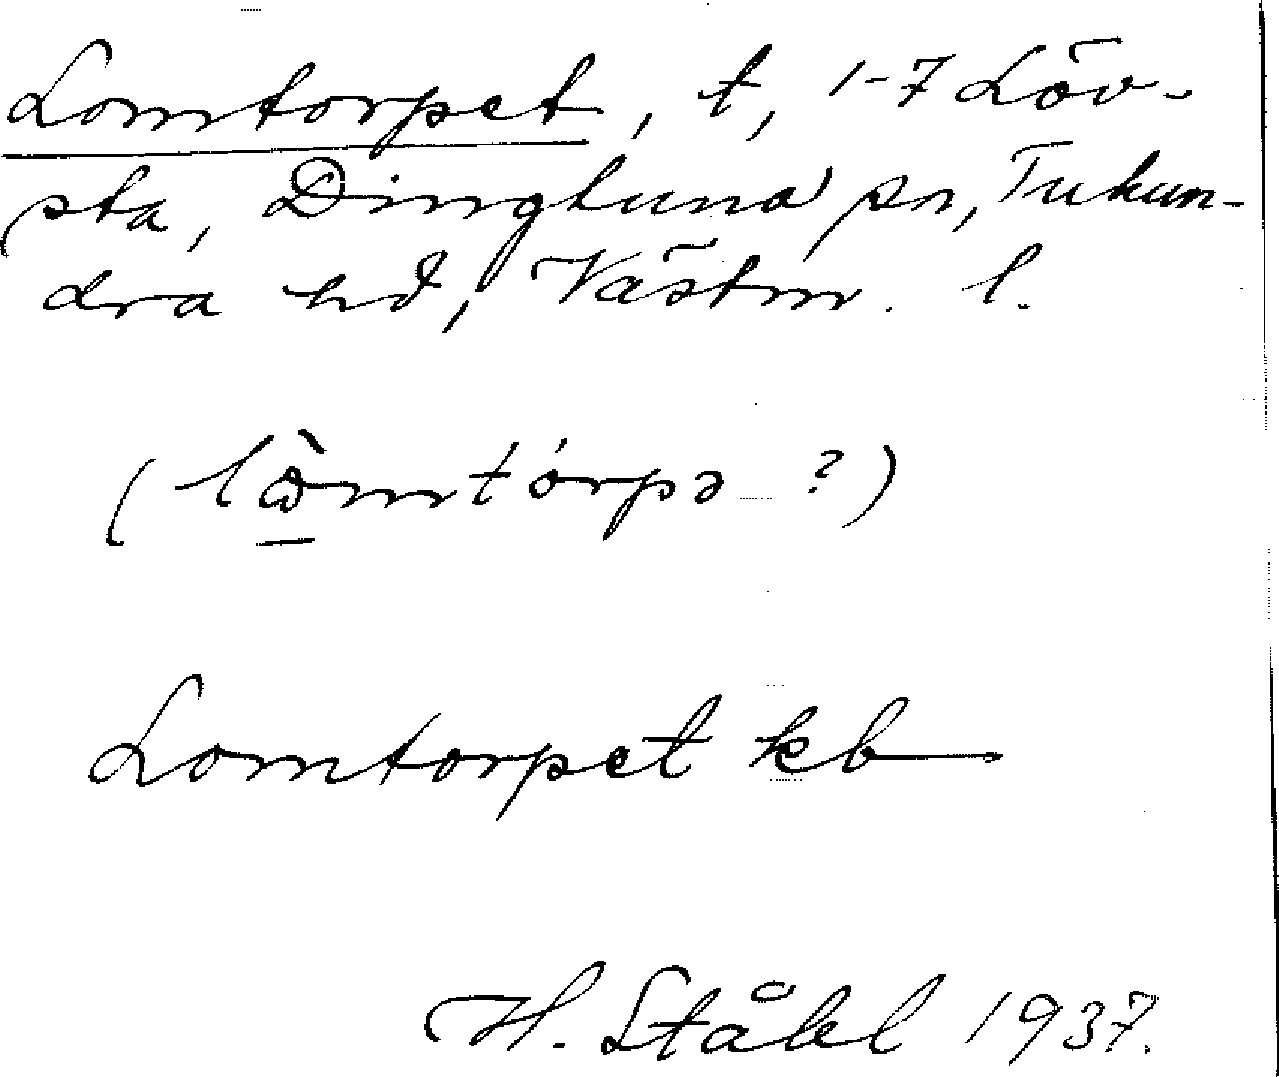 Lomtorpet, t, 1-7 Löv-
sta, Dingtuna sn, Tuhun-
dra hd, Västm. l.
(lὼmtórpə ?)
Lomtorpet kb
H. Ståhl 1937.